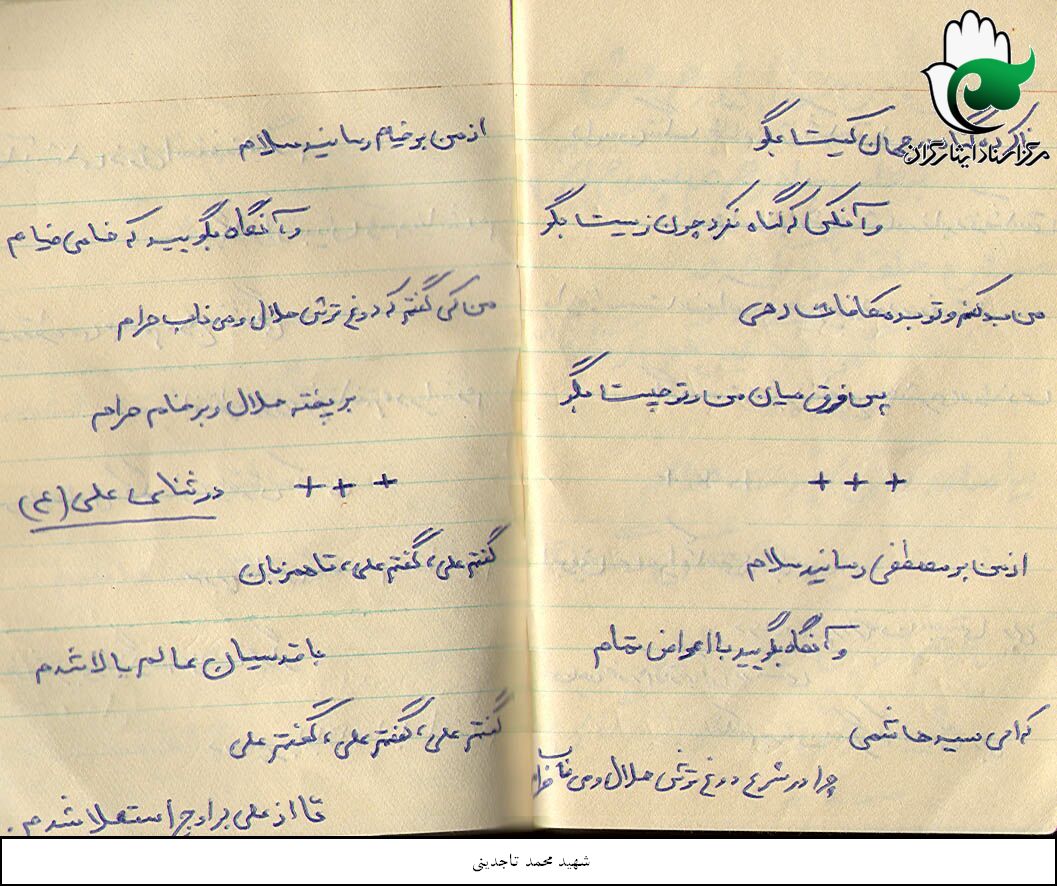 ناکرده گناه در جهان کیست بگو
وآنکس که گناه نکرد چون زیست بگو
من بد کنم و تو بد مکافات دهی
پس فرق میان من و تو چیست بگو
+ + +
از من بر مصطفی رسانید سلام
وآنگاه بگویید با اعواض تمام
که ای سید هاشمی
چرا در شرع دوغ ترش حلال و می ناب حرام
از من بر خیام رسانید سلام
وآنگاه بگویید که خامی خیام
من کی گفتم که دوغ ترش حلال و می ناب حرام
بر پخته حلال و بر خام حرام
+ + + در ثنای علی (ع)
گفتم علی، گفتم علی، تا همزبان
با قدسیان عالم بالا شدم
گفتم علی، گفتم علی، گفتم علی
تا از علی بر اوج استعلا شدم.
مرکز اسناد ایثارگران
شهید محمد تاجدینی